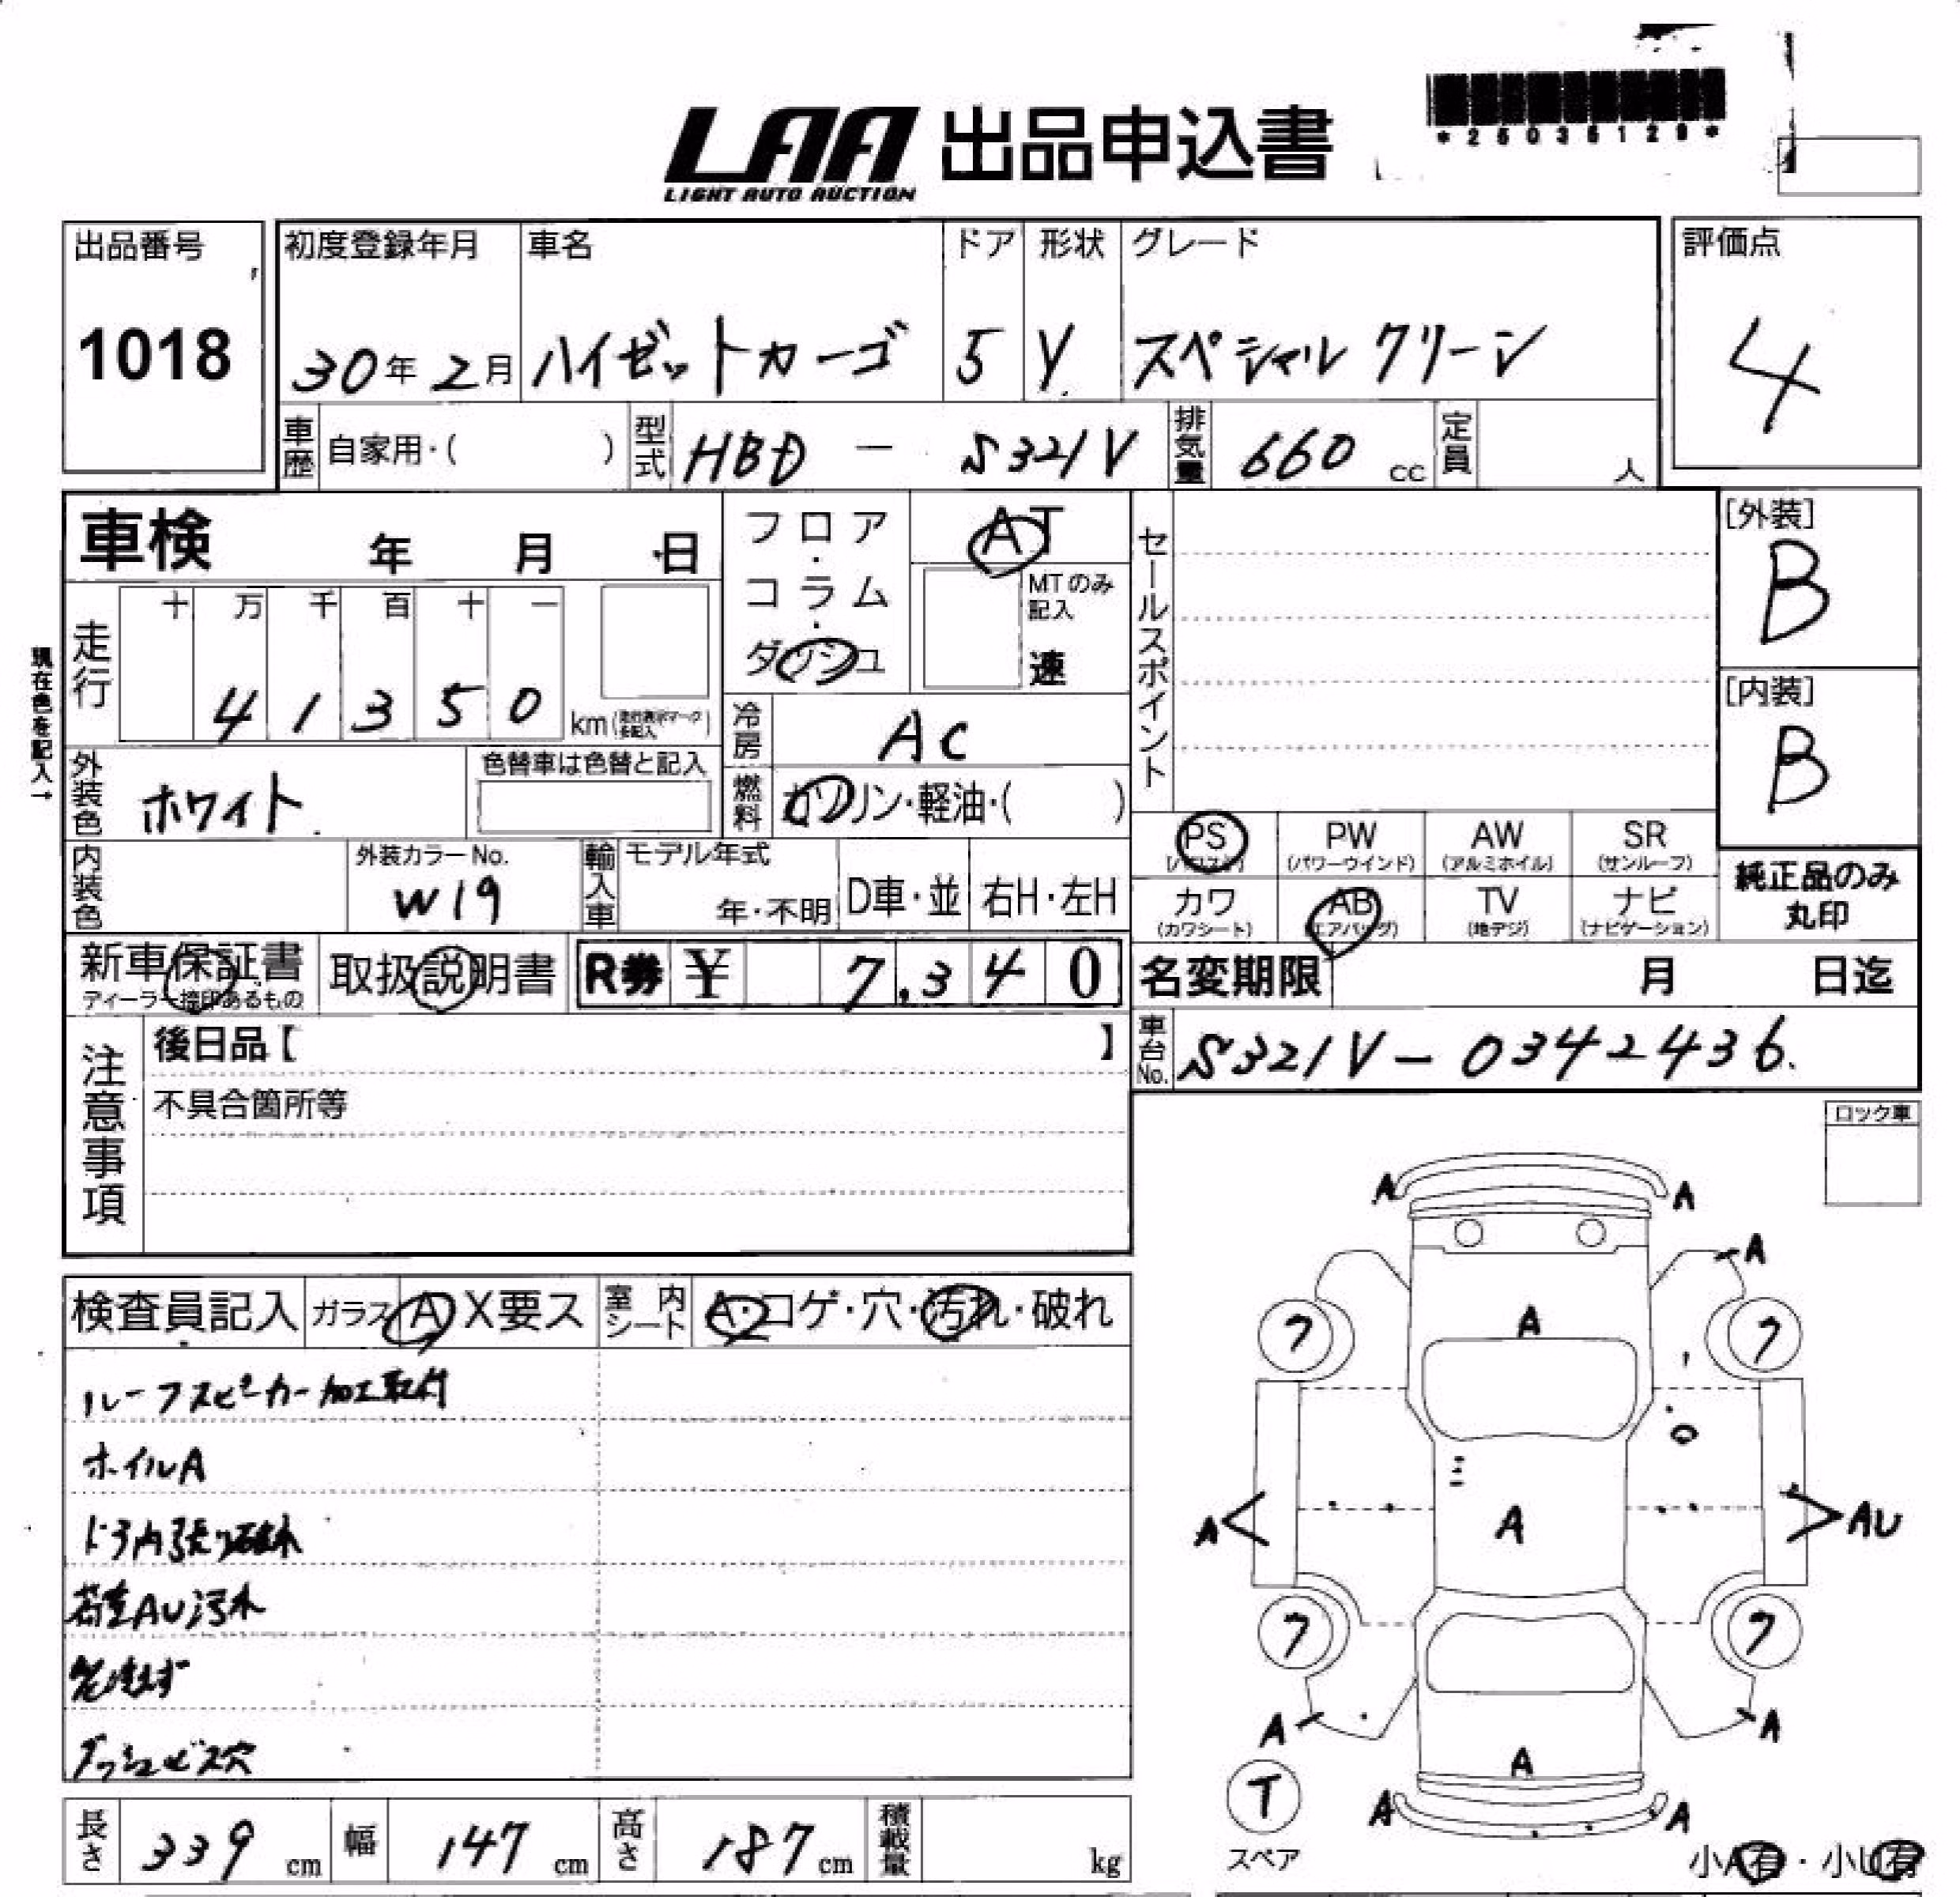 LAA 出品申込書
LIGHT AUTO AUCTION
*25036129*
出品番号 初度登録年月 車名 ドア 形状 グレード 評価点
1018 30年2月 ハイゼットカーゴ 5 V スペシャルクリーン 4
車歴 自家用・( ) 型式 HBD - S321V 排気量 660 cc 定員 人
車検 年 月 日
フロア・コラム・ダッシュ
AT
MTのみ記入
速
セールスポイント
[外装]
B
[内装]
B
現在色を記入→
走行 十 万 千 百 十 一
4 1 3 5 0 km
冷房 AC
外装色 ホワイト
色替車は色替と記入
燃料 ガソリン・軽油・( )
PS PW (パワーウインド) AW (アルミホイル) SR (サンルーフ)
カワ (カワシート) AB (エアバッグ) TV (地デジ) ナビ (ナビゲーション)
純正品のみ
丸印
内装色
外装カラーNo.
W19
輸入車 モデル年式
年・不明 D車・並 右H・左H
新車保証書 取扱説明書 R券 ¥ 7,340
ディーラー捺印あるもの
名変期限 月 日迄
車台No. S321V-0342436.
注意事項
後日品【 】
不具合箇所等
ロック車
検査員記入 ガラス A X要ス 室内シート A・コゲ・穴・汚れ・破れ
ルーフスピーカー加工取付
ホイルA
ドア内張り破れ
荷室AU汚れ
ダッシュビス穴
A A
A
A
7 7
A
A AU
7 7
A A
A
A A
T
スペア
小A有・小U有
長さ 339 cm 幅 147 cm 高さ 187 cm 積載量 kg